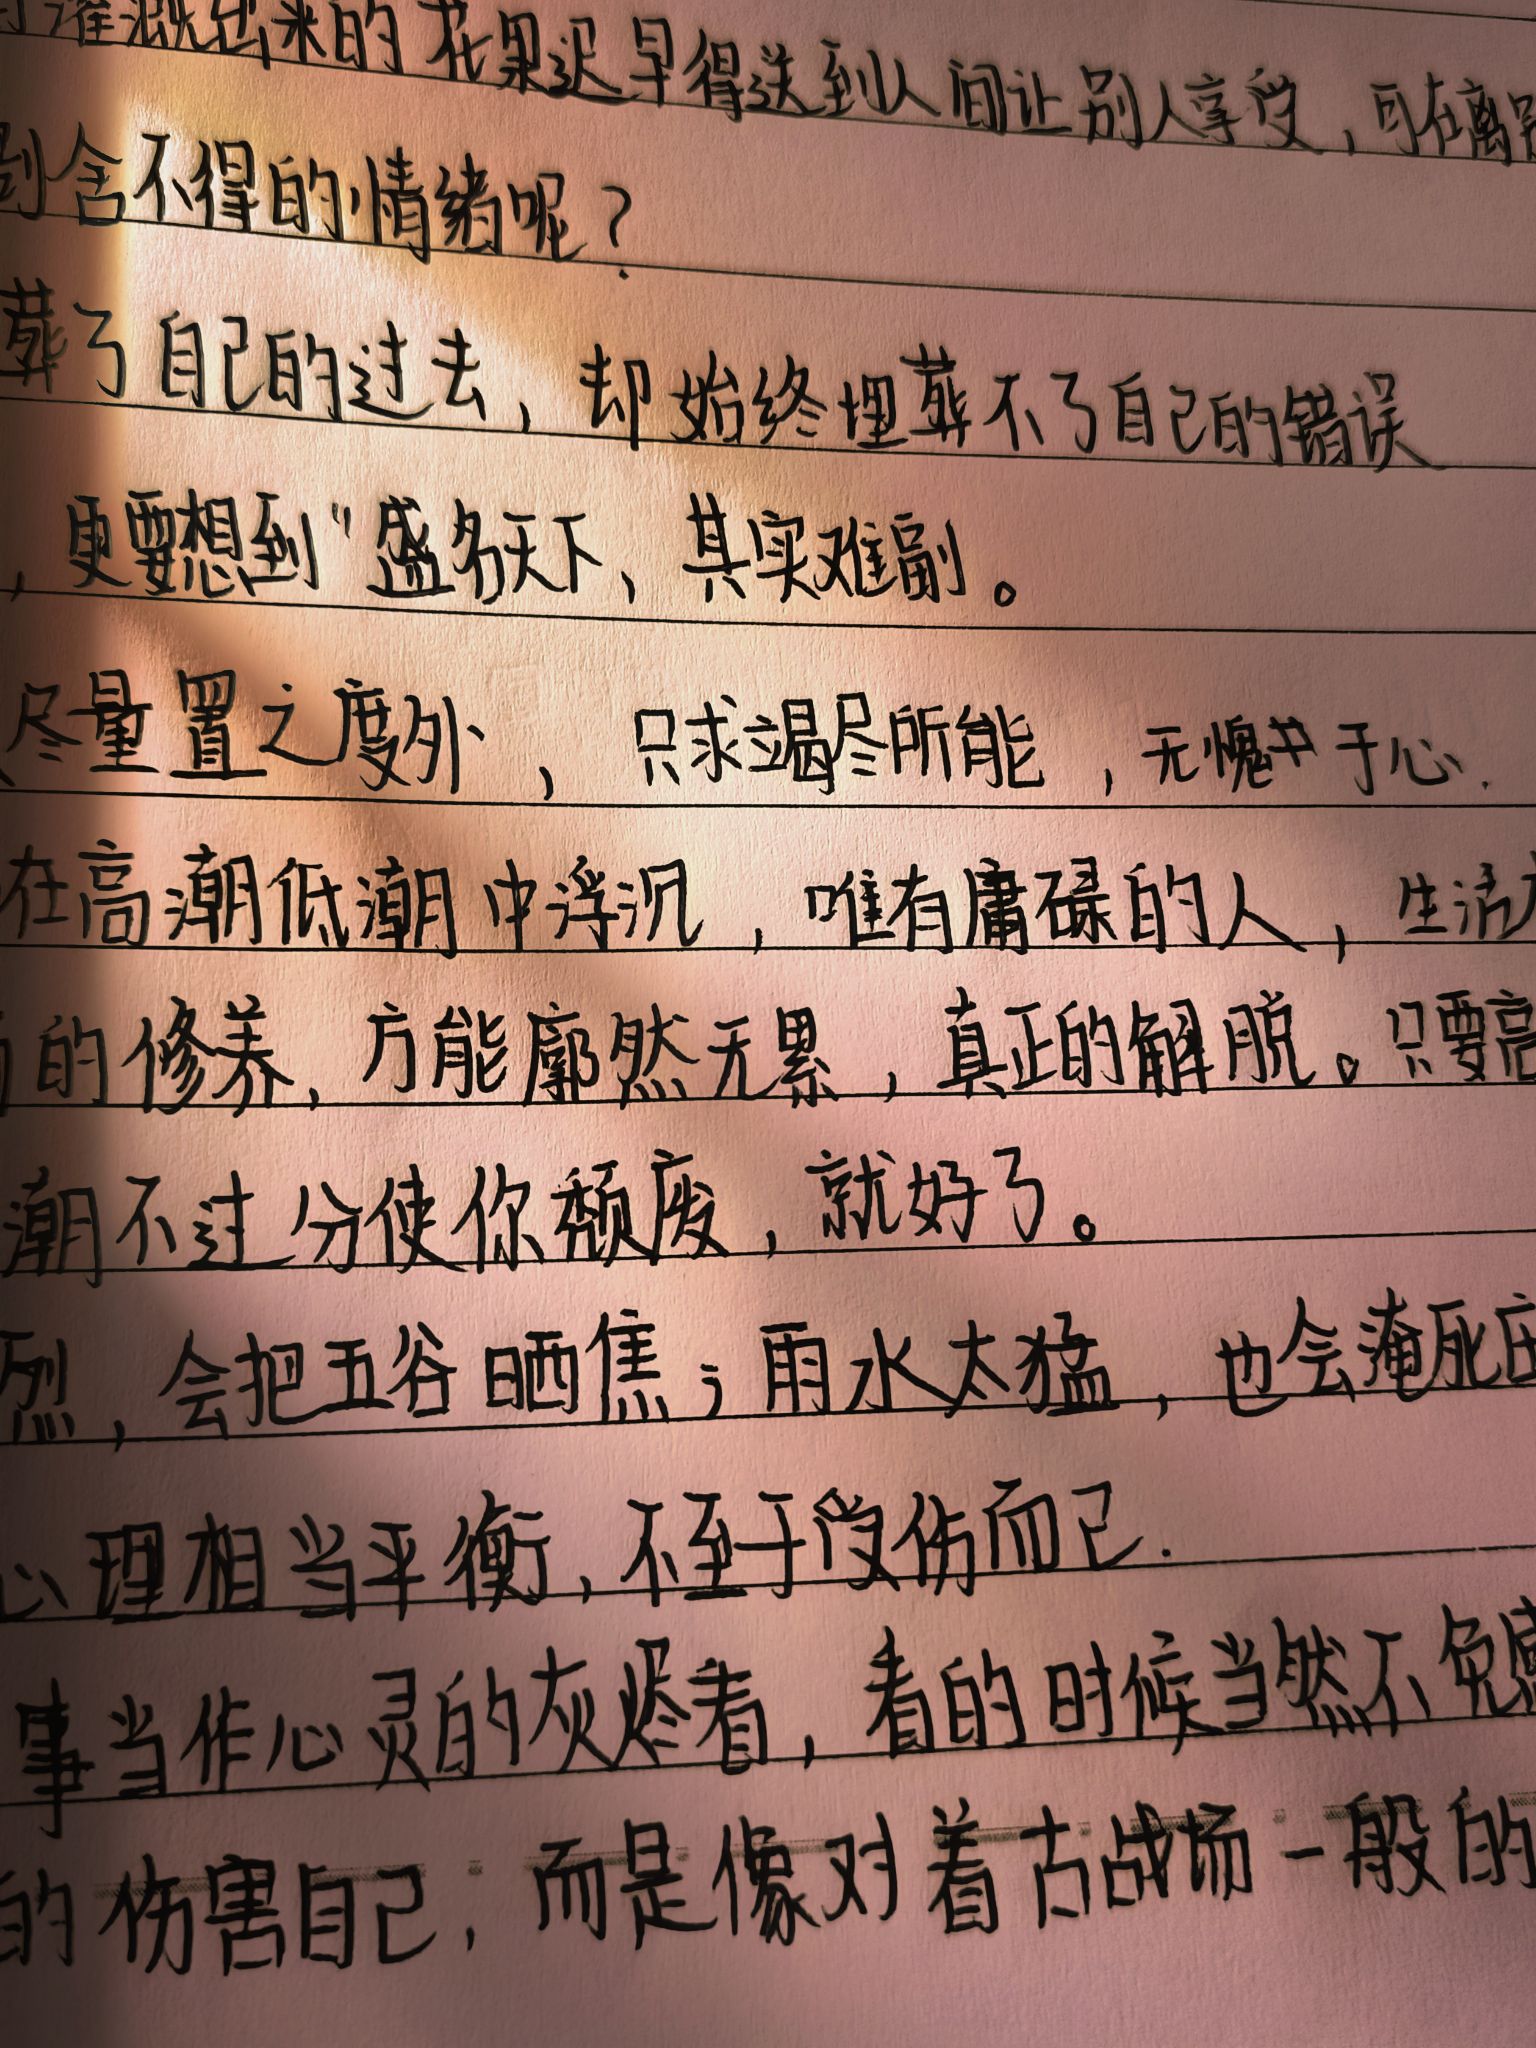 灌溉出来的花果迟早得送到人间让别人享受，可在离
到舍不得的情绪呢？
葬了自己的过去，却始终埋葬不了自己的错误
，更要想到“盛名天下，其实难副。
尽量置之度外，只求竭尽所能，无愧于心.
在高潮低潮中浮沉，唯有庸碌的人，生活
的修养，方能廓然无累，真正的解脱。只要高
潮不过分使你颓废，就好了。
烈，会把五谷晒焦；雨水太猛，也会淹死庄
心理相当平衡，不至于受伤而已.
事当作心灵的灰烬看，看的时候当然不免感
的伤害自己，而是像对着古战场一般的